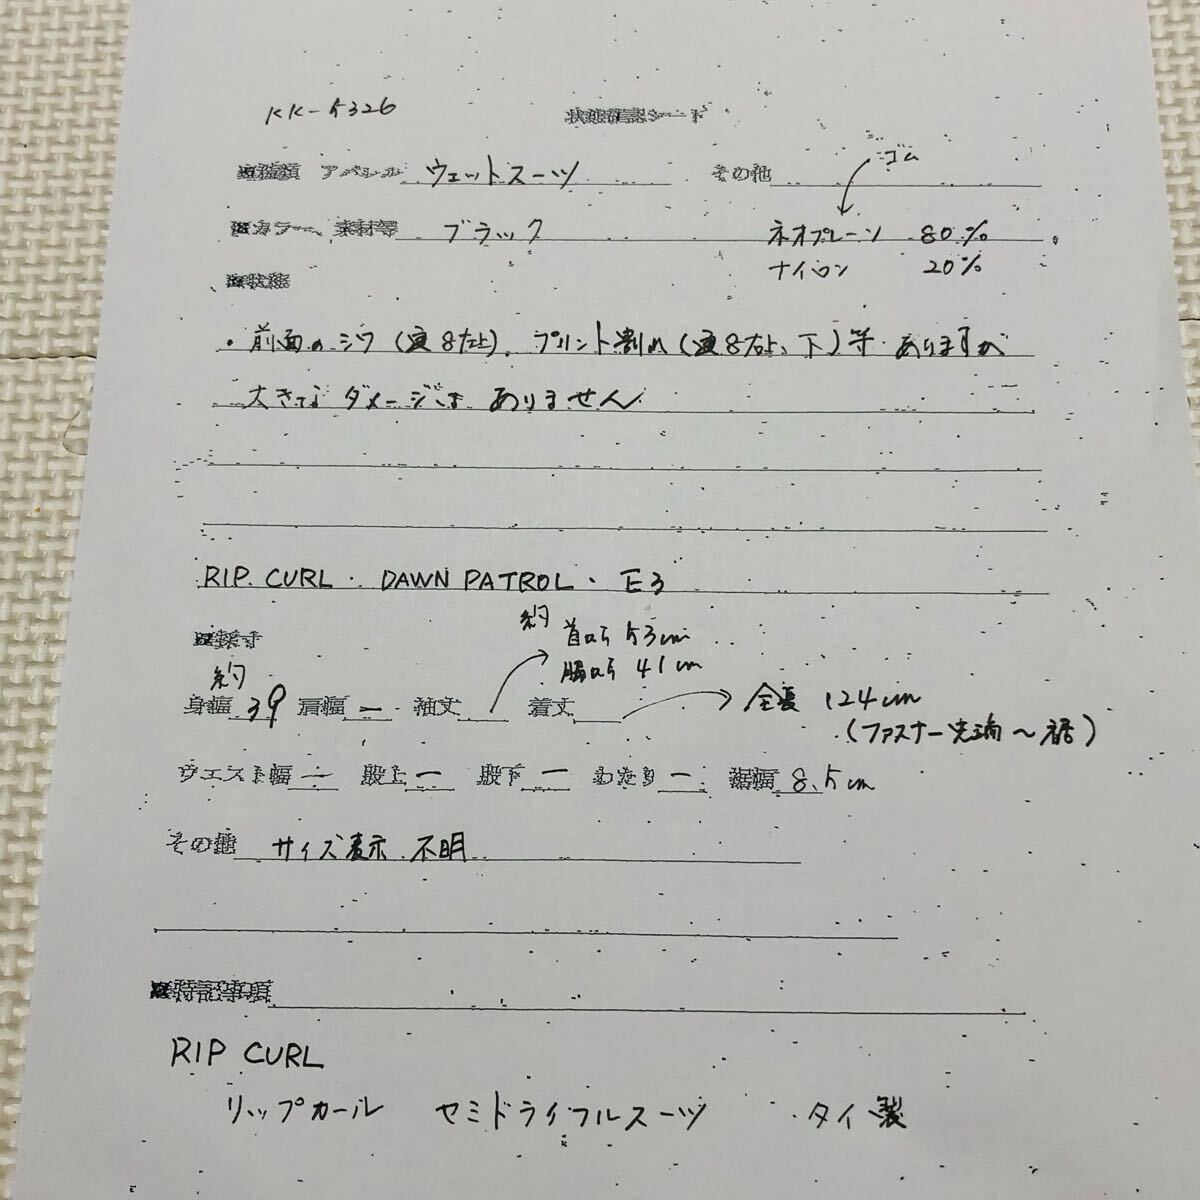 KK-5326 状態確認シート
■種類 アパレル ウェットスーツ その他 ゴム
■カラー、素材等 ブラック ネオプレーン 80%
ナイロン 20%
■状態
・前面のシワ(画8左上)、プリント割れ(画8右上、下)等 ありますが
大きなダメージは ありません
RIP CURL・DAWN PATROL・E3
■採寸 約 首から 53cm
約 脇から 41cm
身幅 39 肩幅 ー 袖丈 着丈 全長 124cm
(ファスナー先端〜裾)
ウエスト幅 ー 股上 ー 股下 ー わたり ー 裾幅 8.5cm
その他 サイズ表示 不明
■特記事項
RIP CURL
リップカール セミドライフルスーツ タイ製